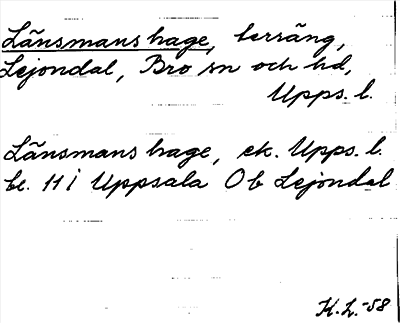 Länsmans hage, terräng,
Lejondal, Bro sn och hd,
Upps. l.
Länsmans hage, ek. Upps. l.
bl. 11 i Uppsala Ob Lejondal
K.L.-58